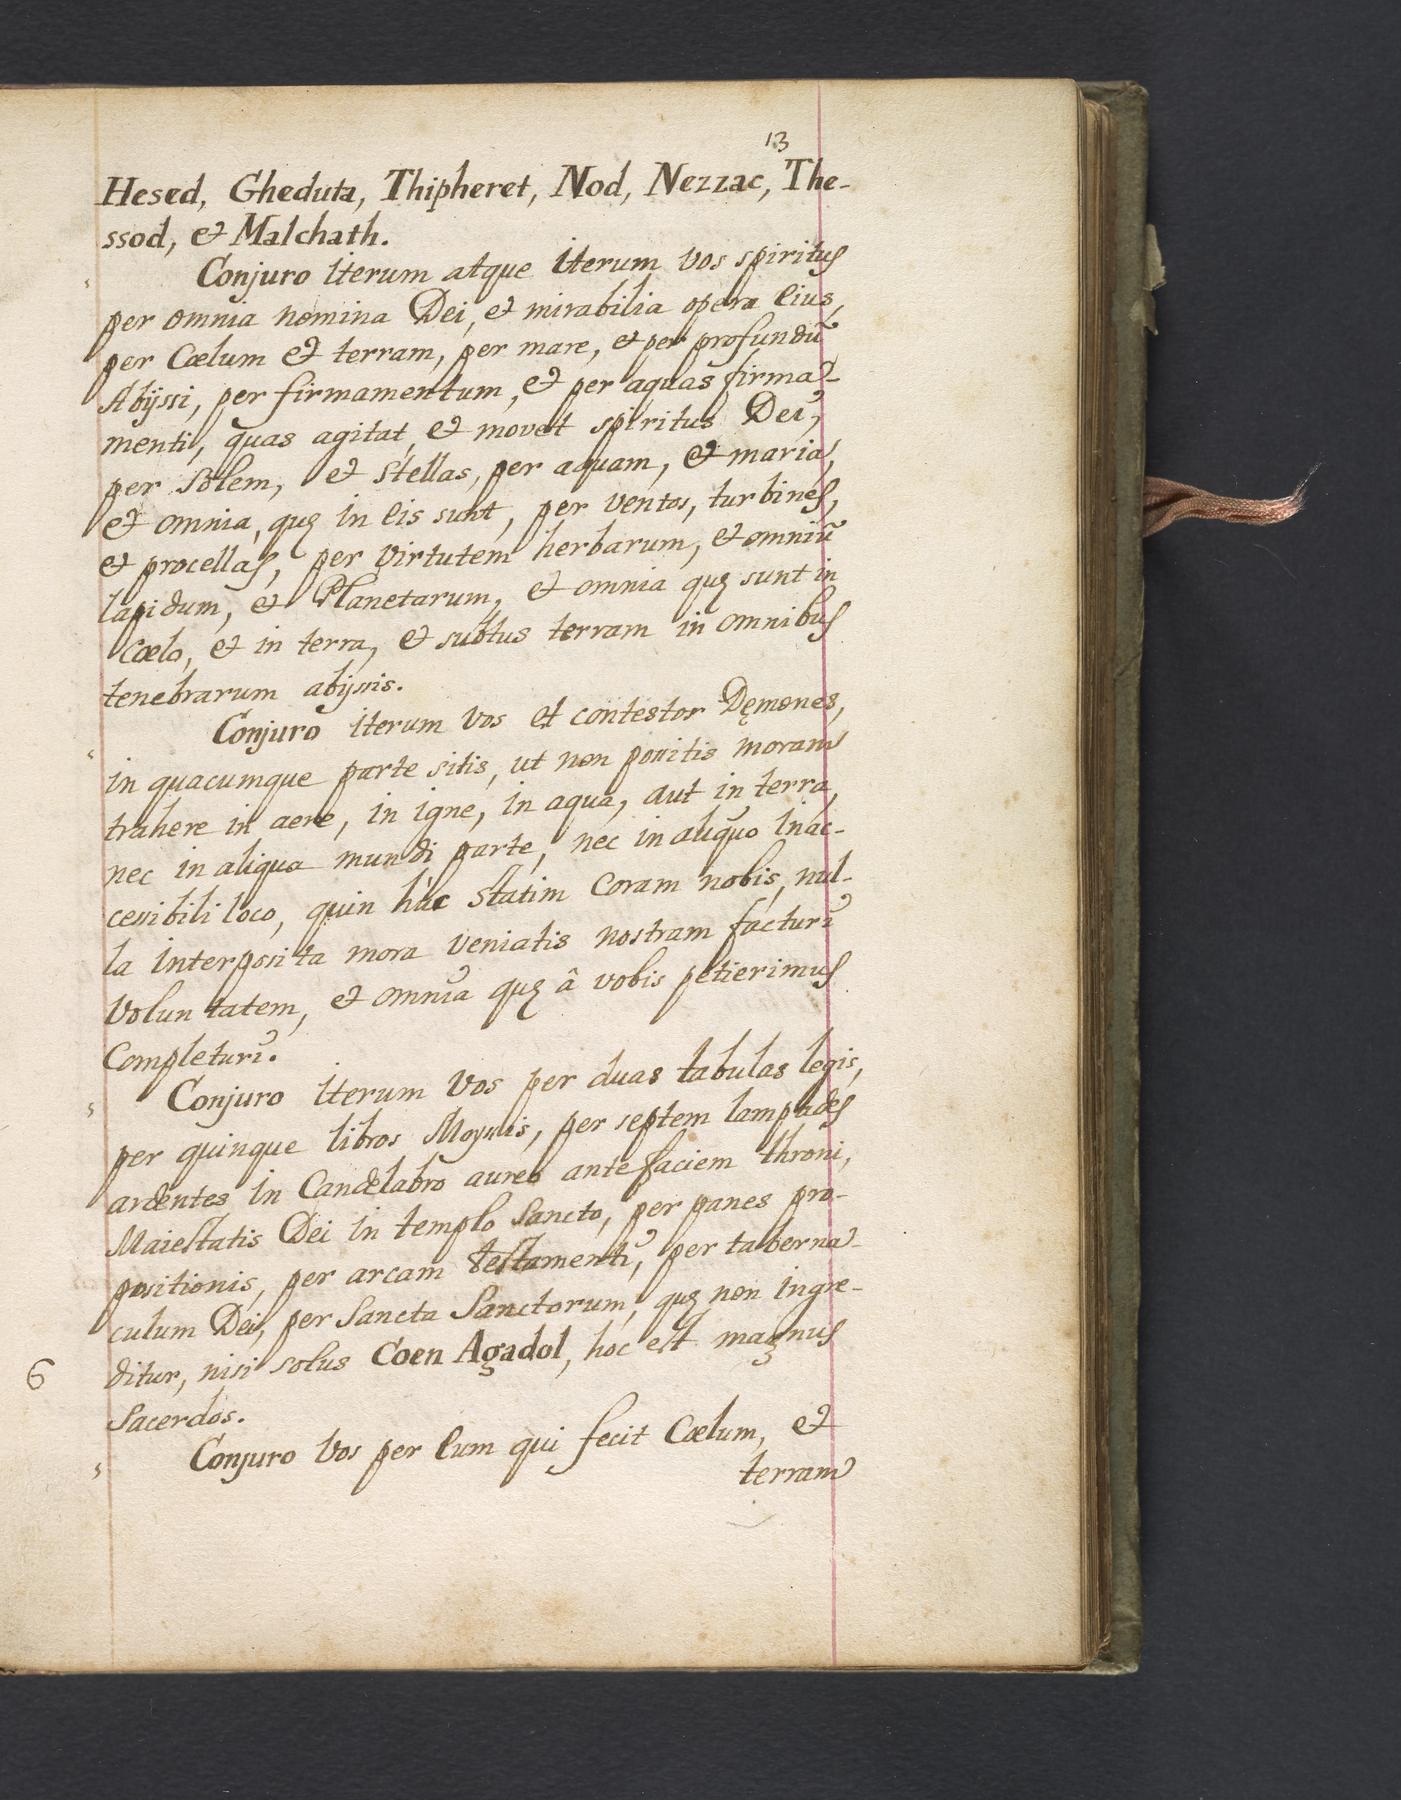 13
Hesed, Gheduta, Thipheret, Nod, Nezzac, The-
ssod, et Malchath.
Conjuro iterum atque iterum vos spiritus
per omnia nomina Dei, et mirabilia opera eius,
per Cœlum et terram, per mare, et per profundũ
Abijssi, per firmamentum, et per aquas firma-
menti, quas agitat, et movet spiritus Dei,
per Solem, et stellas, per aquam, et maria,
et omnia, quę in eis sunt, per ventos, turbines,
et procellas, per virtutem herbarum, et omniũ
lapidum, et Planetarum, et omnia quę sunt in
Cœlo, et in terra, et subtus terram in omnibus
tenebrarum abijssis.
Conjuro iterum vos et contestor Dęmones,
in quacumque parte sitis, ut non possitis moram
trahere in aere, in igne, in aqua, aut in terra,
nec in aliqua mundi parte, nec in aliquo inac-
cessibili loco, quin hùc statim coram nobis, nul-
la interposita mora veniatis nostram facturi
voluntatem, et omnia quę â vobis petierimus
Completuri.
Conjuro iterum vos per duas tabulas legis,
per quinque libros Moysis, per septem lampades
ardentes in Candelabro aureo ante faciem throni,
Maiestatis Dei in templo Sancto, per panes pro-
positionis, per arcam testamenti, per taberna-
culum Dei, per Sancta Sanctorum, quę non ingre-
ditur, nisi solus Coen Agadol, hoc est magnus
6
Sacerdos.
Conjuro vos per eum qui fecit Cœlum, et
terram